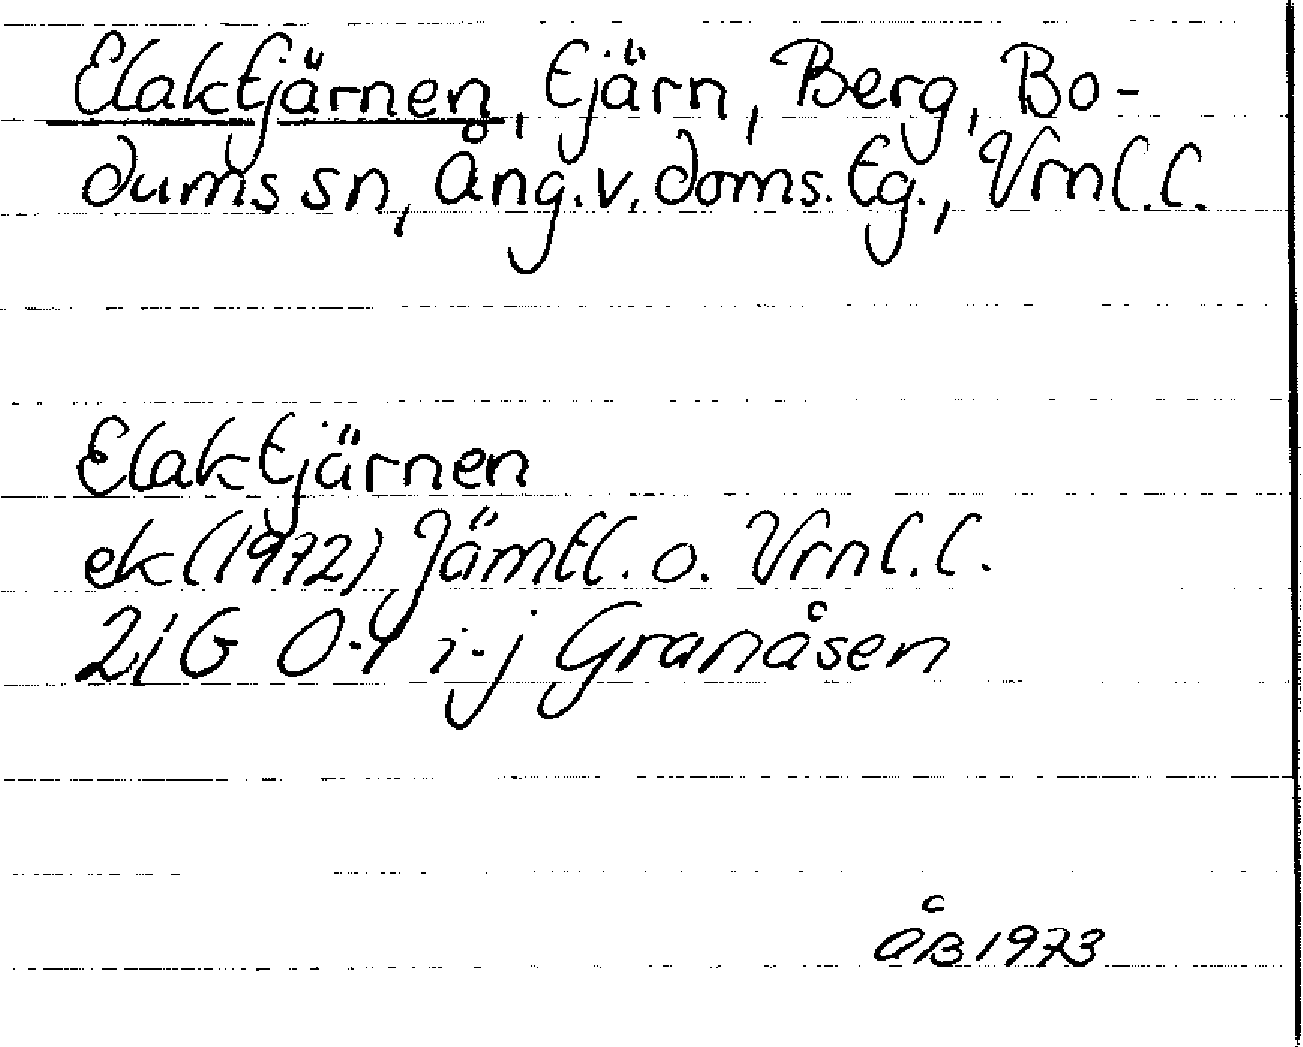 Elaktjärnen, tjärn, Berg, Bo-
dums sn, Ång.v. doms. tg., Vrnl.l.
Elaktjärnen
ek (1972) Jämtl. o. Vrnl.l.
21G 0-1 i-j Granåsen
ÅB 1973